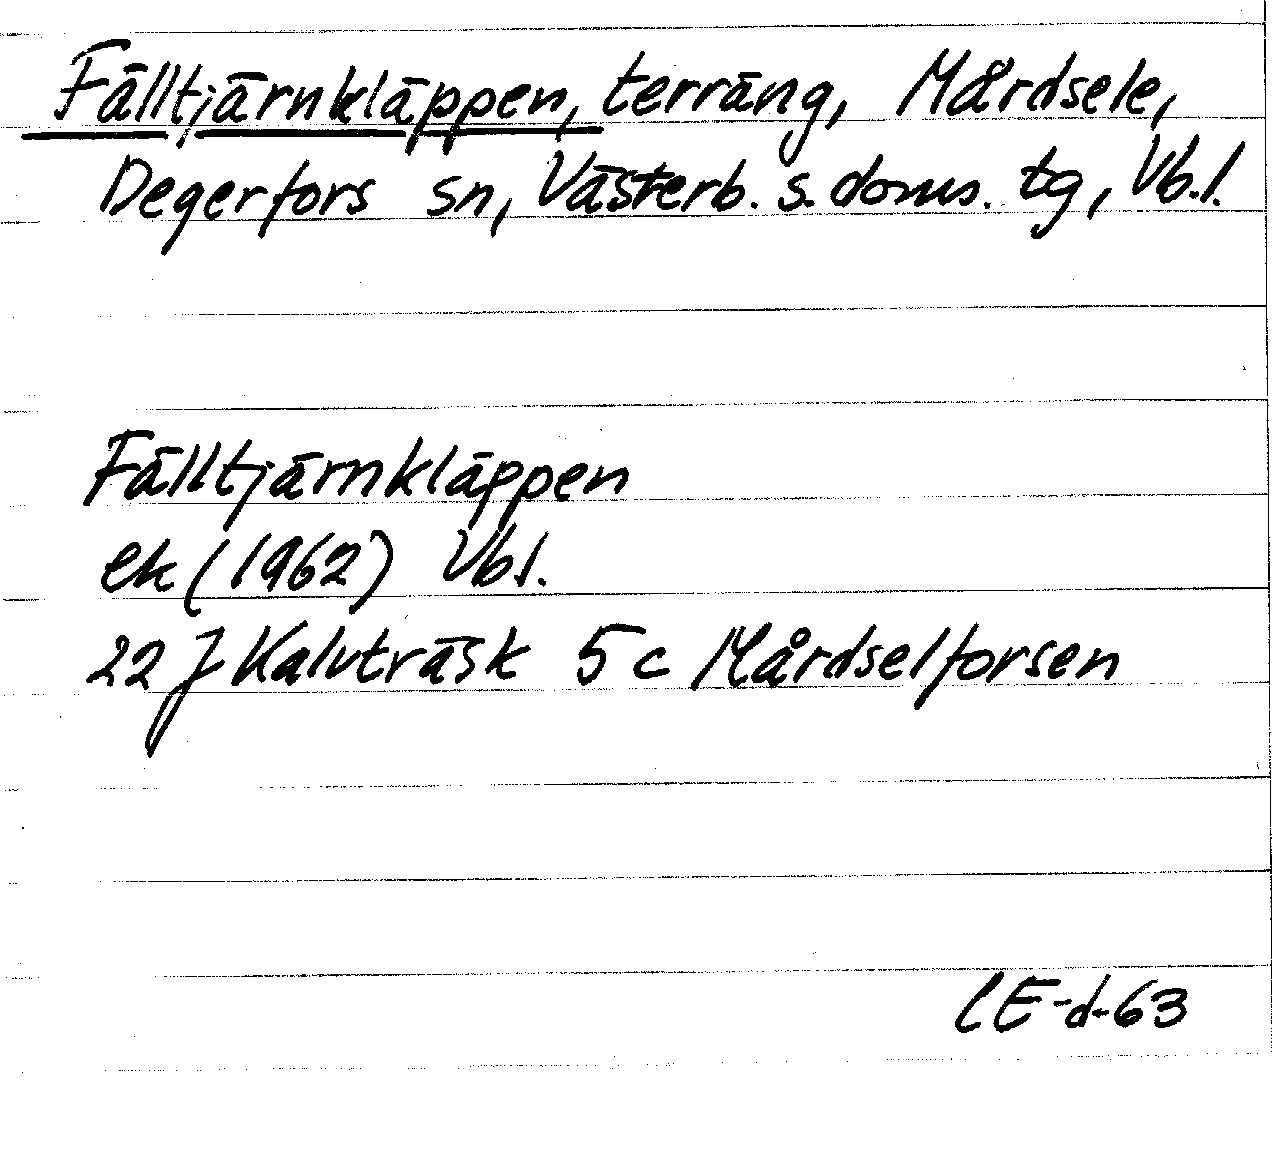 Fälltjärnkläppen, terräng, Mårdsele,
Degerfors sn, Västerb. s. doms. tg, Vb.l.
Fälltjärnkläppen
ek (1962) Vbl.
22 J Kalvträsk 5 c Mårdselforsen
CE-d-63